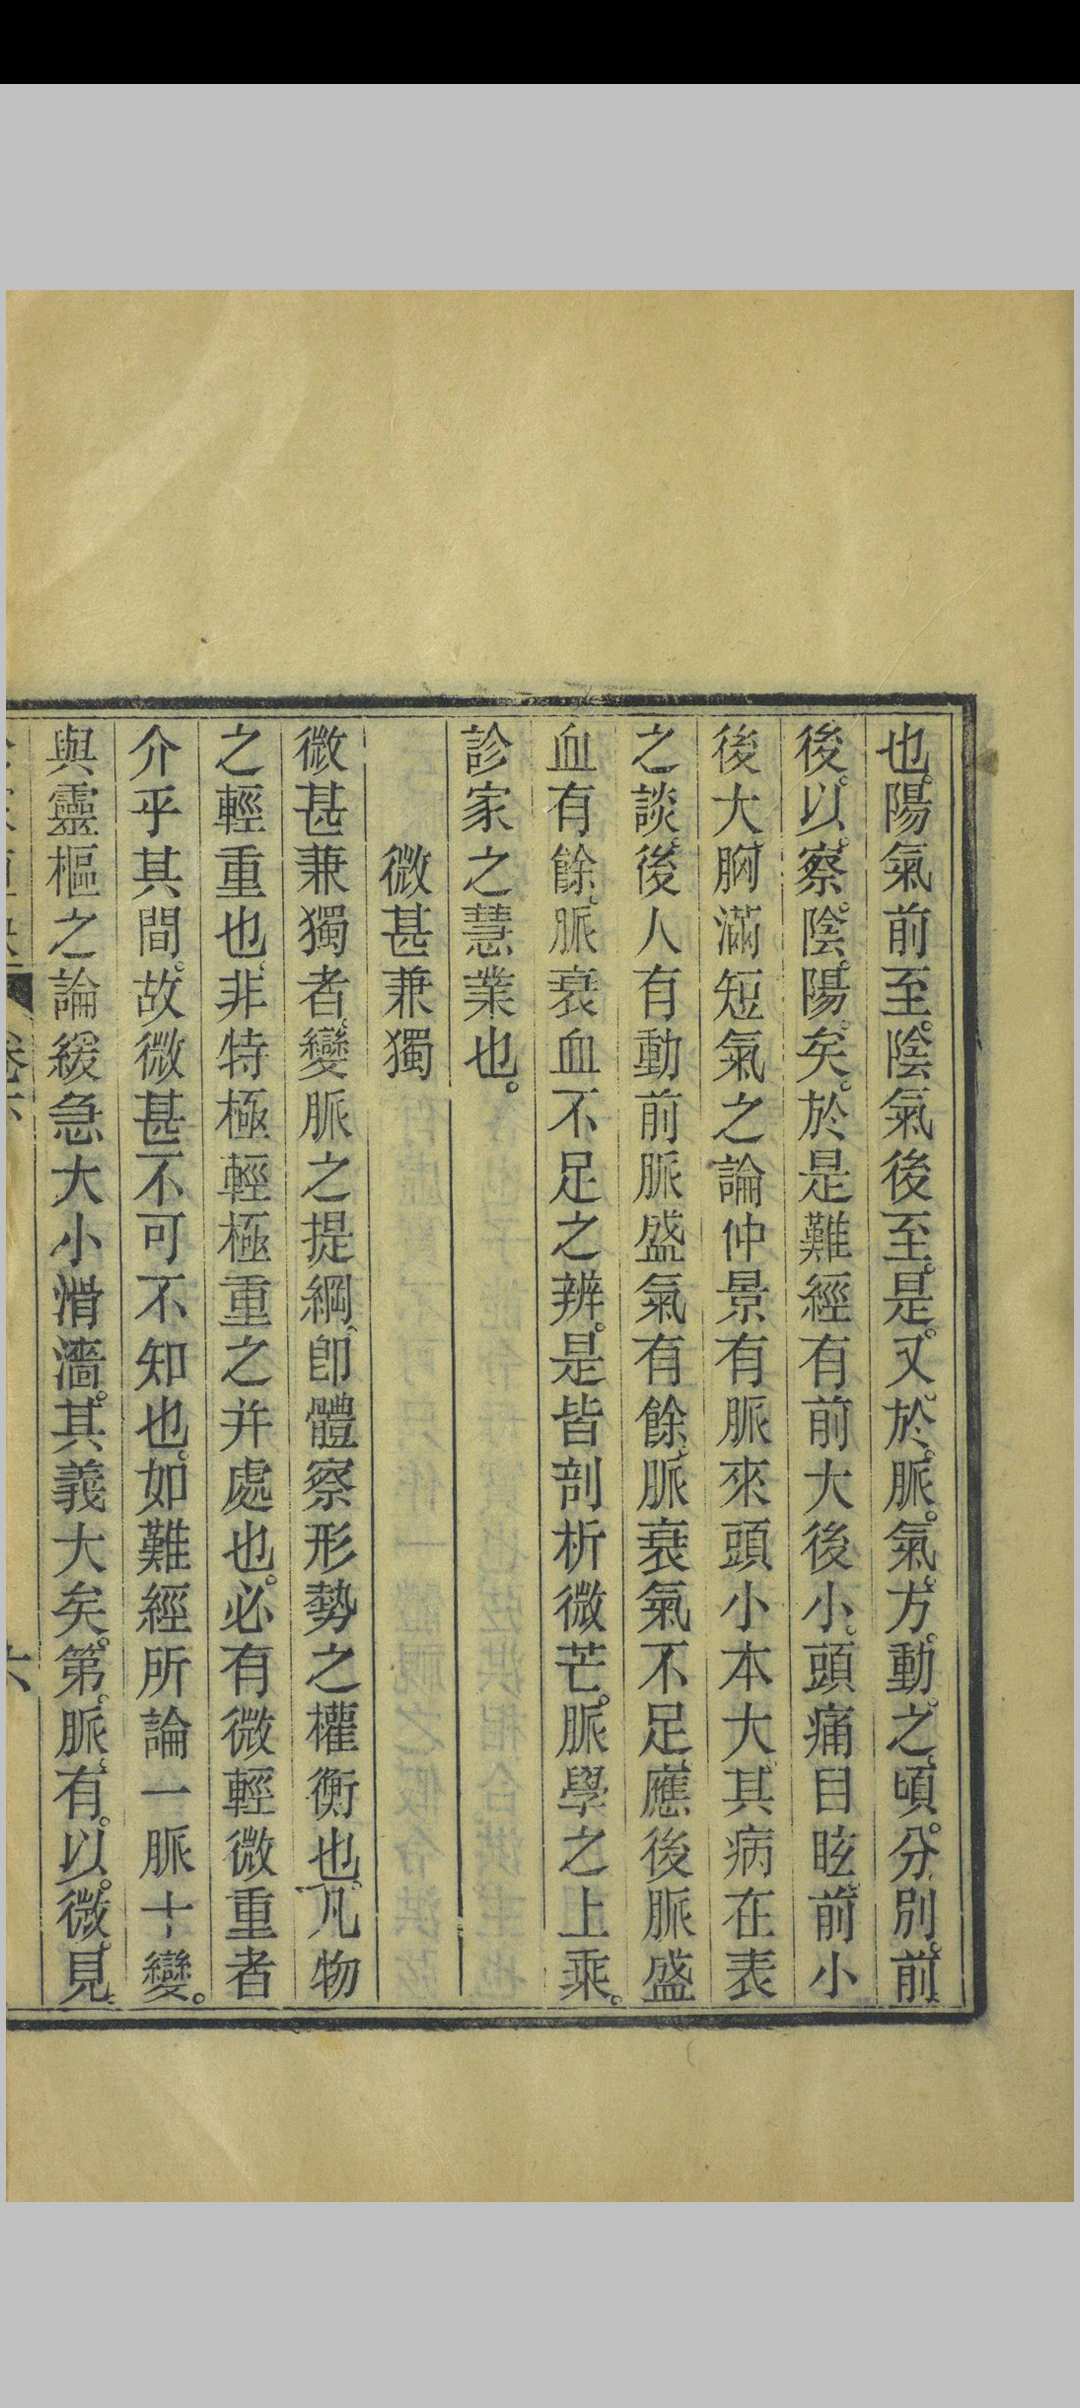 也。陽氣前至。陰氣後至。是。又。於。脈。氣。方。動。之。頃。分。別。前。
後。以。察。陰。陽。矣。於是難經有前大後小。頭痛目眩。前小
後大。胸滿短氣之論仲景有脈來頭小本大其病在表
之談。後人有動前脈盛氣有餘。脈衰氣不足。應後脈盛
血有餘。脈衰血不足之辨。是皆剖析微芒。脈學之上乘。
診家之慧業也。
微甚兼獨
微甚兼獨者。變脈之提綱。卽體察形勢之權衡也。凡物
之輕重也。非特極輕極重之并處也。必有微輕微重者
介乎其間。故微甚不可不知也。如難經所論一脈十變。
與靈樞之論緩急大小滑濇。其義大矣。第。脈。有。以。微。見。
卷下
六